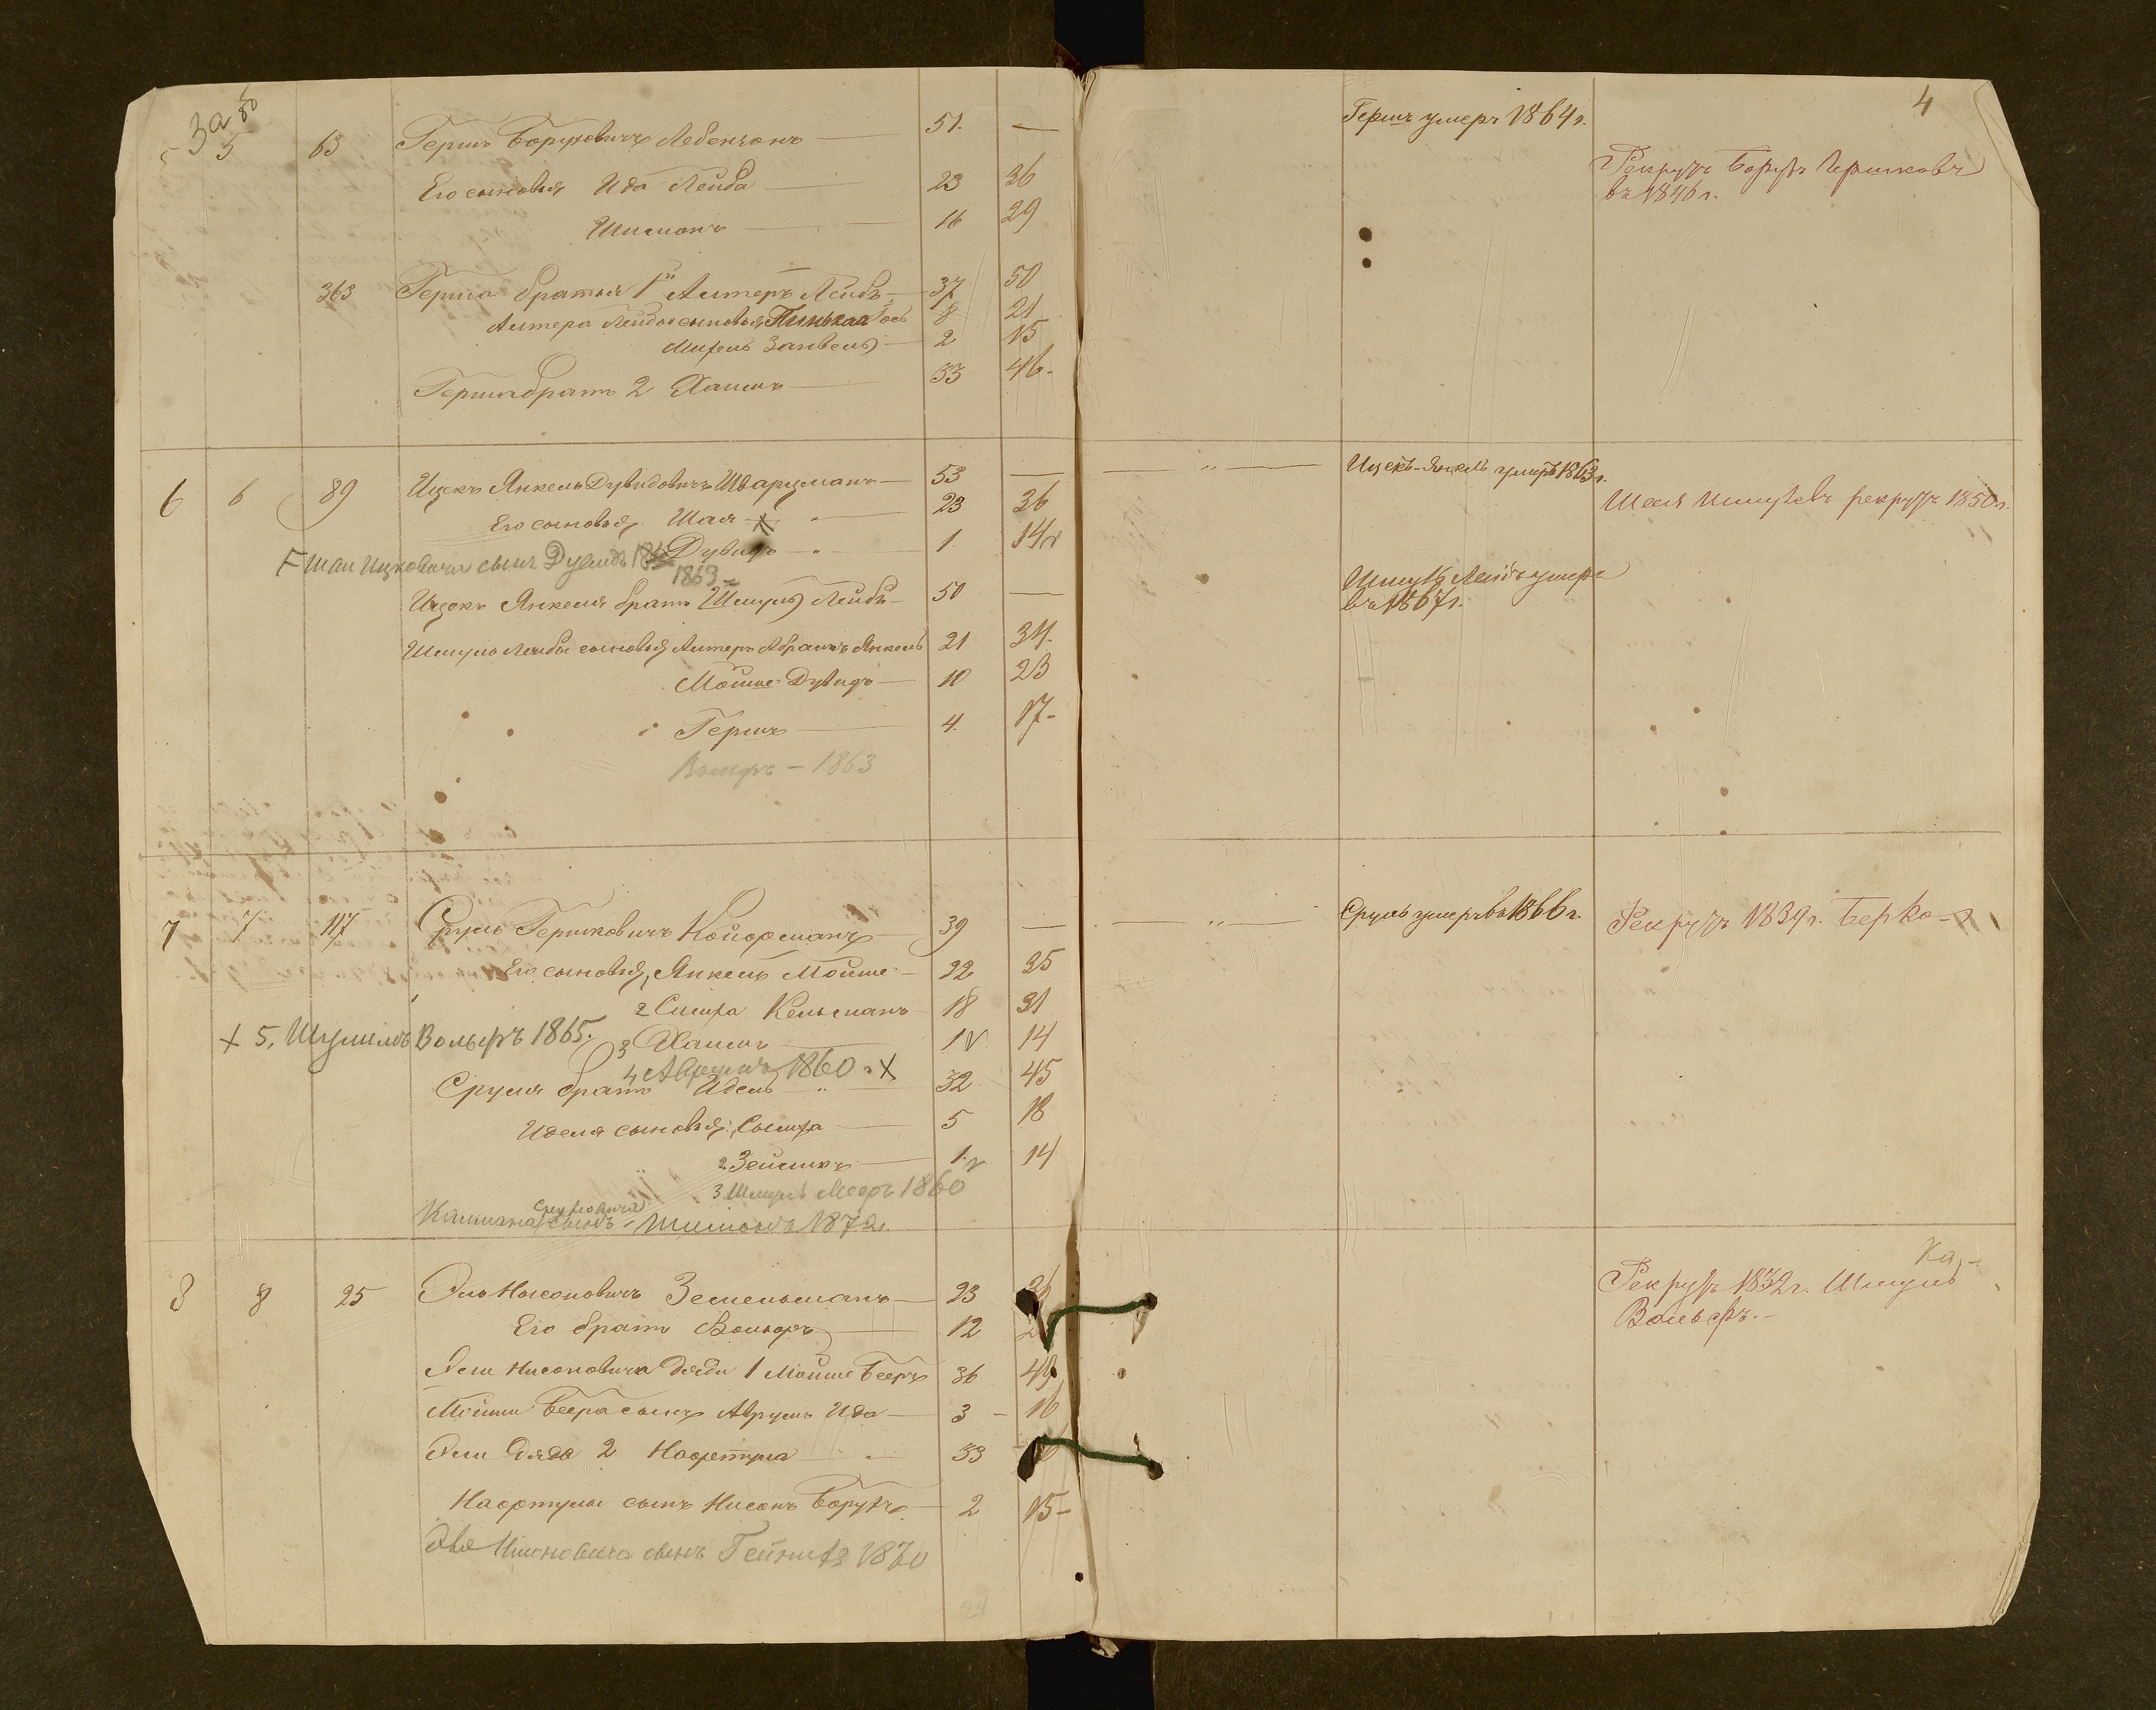 4
За
5 5 63 Гершъ Боруховичъ Лебензонъ 51. — Гершъ умеръ 1864 г.
Рекрутъ Борухъ Гершковъ
въ 1846 г.
Его сыновья Ида Лейба 23 36
Шимонъ 16 29
363 Герша братья 1й Алтеръ Лейбъ 37 50
Алтера Лейбы сыновья Пинькас 8 21
Занвель 2 15
Герша братъ 2 Хаимъ 33 46.
6 6 89 Ицекъ Янкель Дувидовичъ Шварцманъ 53 — " — Ицекъ-Янкель умеръ 1863 г.
Его сыновья Шая X 23 36 рекрутъ 1850 г.
Дувидъ 1 14 v
Шаи Ицковича сынъ Дувидъ
1869
Ицекъ Янкеля братъ Шмуль Лейбъ 50 — Шмуль Лейбъ умеръ
въ 1867 г.
Шмуль Лейбы сыновья Алтеръ Абрамъ Янкель 21 34.
Мойше Дувидъ 10 23
Гершъ 4. 17-
Вольфъ - 1863
7 7 117 Сруль Гершковичъ 39 — " — Сруль умеръ въ 1866 г. Рекрутъ 1839 г. Берко
Его сыновья, Янкель Мойше 22 35
2 Симха Кельманъ 18 31
+ 5, Шулимъ Вольфъ 1865.
3 Хаимъ 1 v 14
4 Аврумъ 1860 X
Сруля братъ Идель 32 45
Иделя сыновья, Сымха 5 18
2 Зейликъ 1. v 14
3 Шмуль Мееръ 1860
Срулевича
Калмана сынъ - Шимонъ 1872 г.
8 8 25 Эль Нысоновичъ Земельманъ 23 36
Рекрутъ 1832 г. Шмуль
Вольфъ. -
Его братъ Вольфъ 12
Эли Нисоновича дяди 1 Мойше Бееръ 36 49
Мойши Беера сынъ Аврумъ Ида 3 - 16
Эли дядя 2 Нафтула 33
Нафтулы сынъ Нисонъ Борухъ 2 15-
Нисоновича сынъ 1870
24